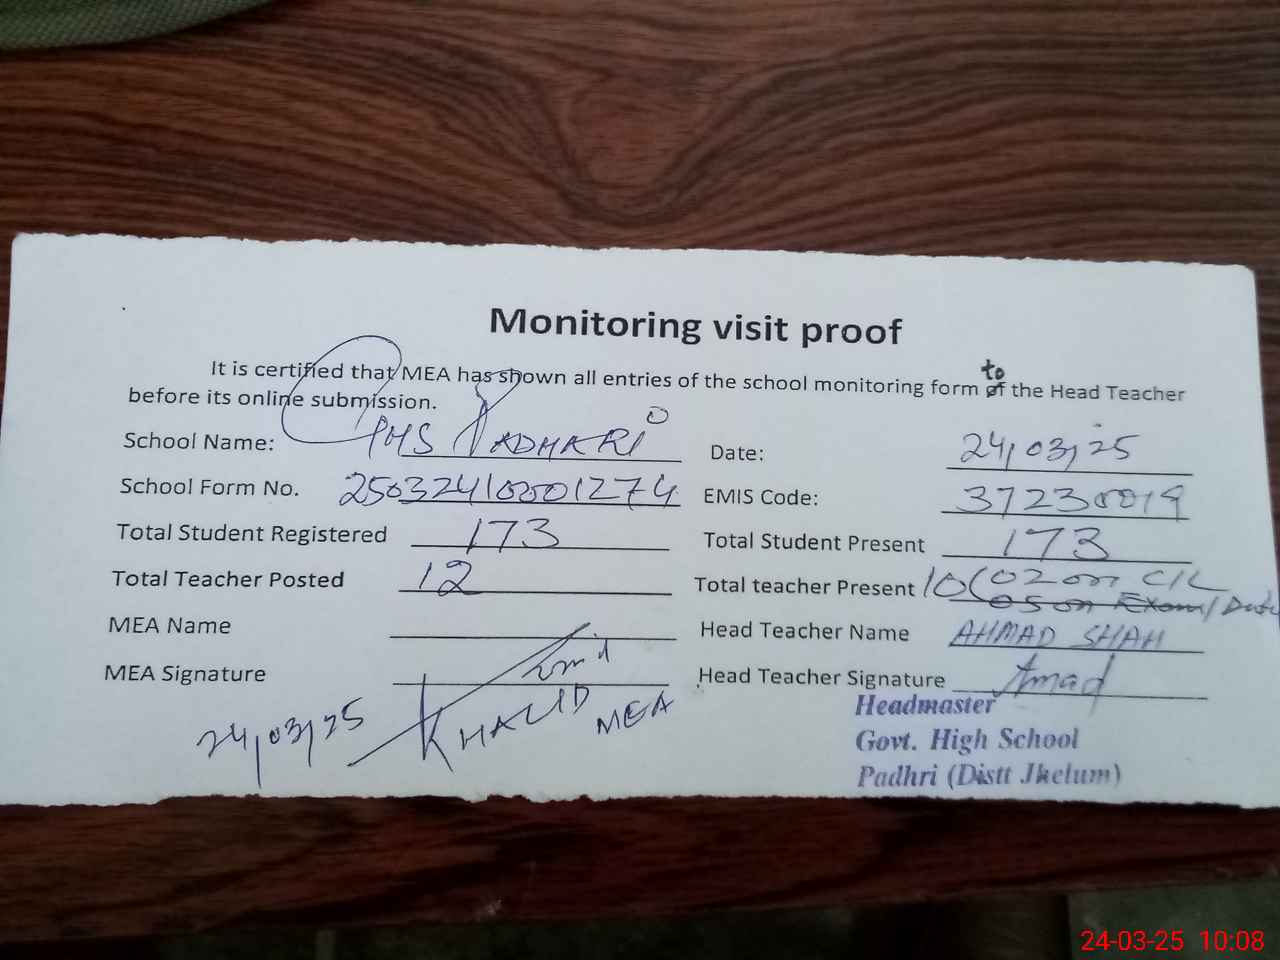 Monitoring visit proof
It is certified that MEA has shown all entries of the school monitoring form of to the Head Teacher
before its online submission.
School Name: GHS PADHARI Date: 24/03/25
School Form No. 25032410001274 EMIS Code: 37230019
Total Student Registered 173 Total Student Present 173
Total Teacher Posted 12 Total teacher Present 10 (02 on C/L
05 on Exam/Duty
MEA Name Head Teacher Name AHMAD SHAH
MEA Signature Head Teacher Signature Ahmad
24/03/25 KHALID MEA
Headmaster
Govt. High School
Padhri (Distt Jhelum)
24-03-25 10:08